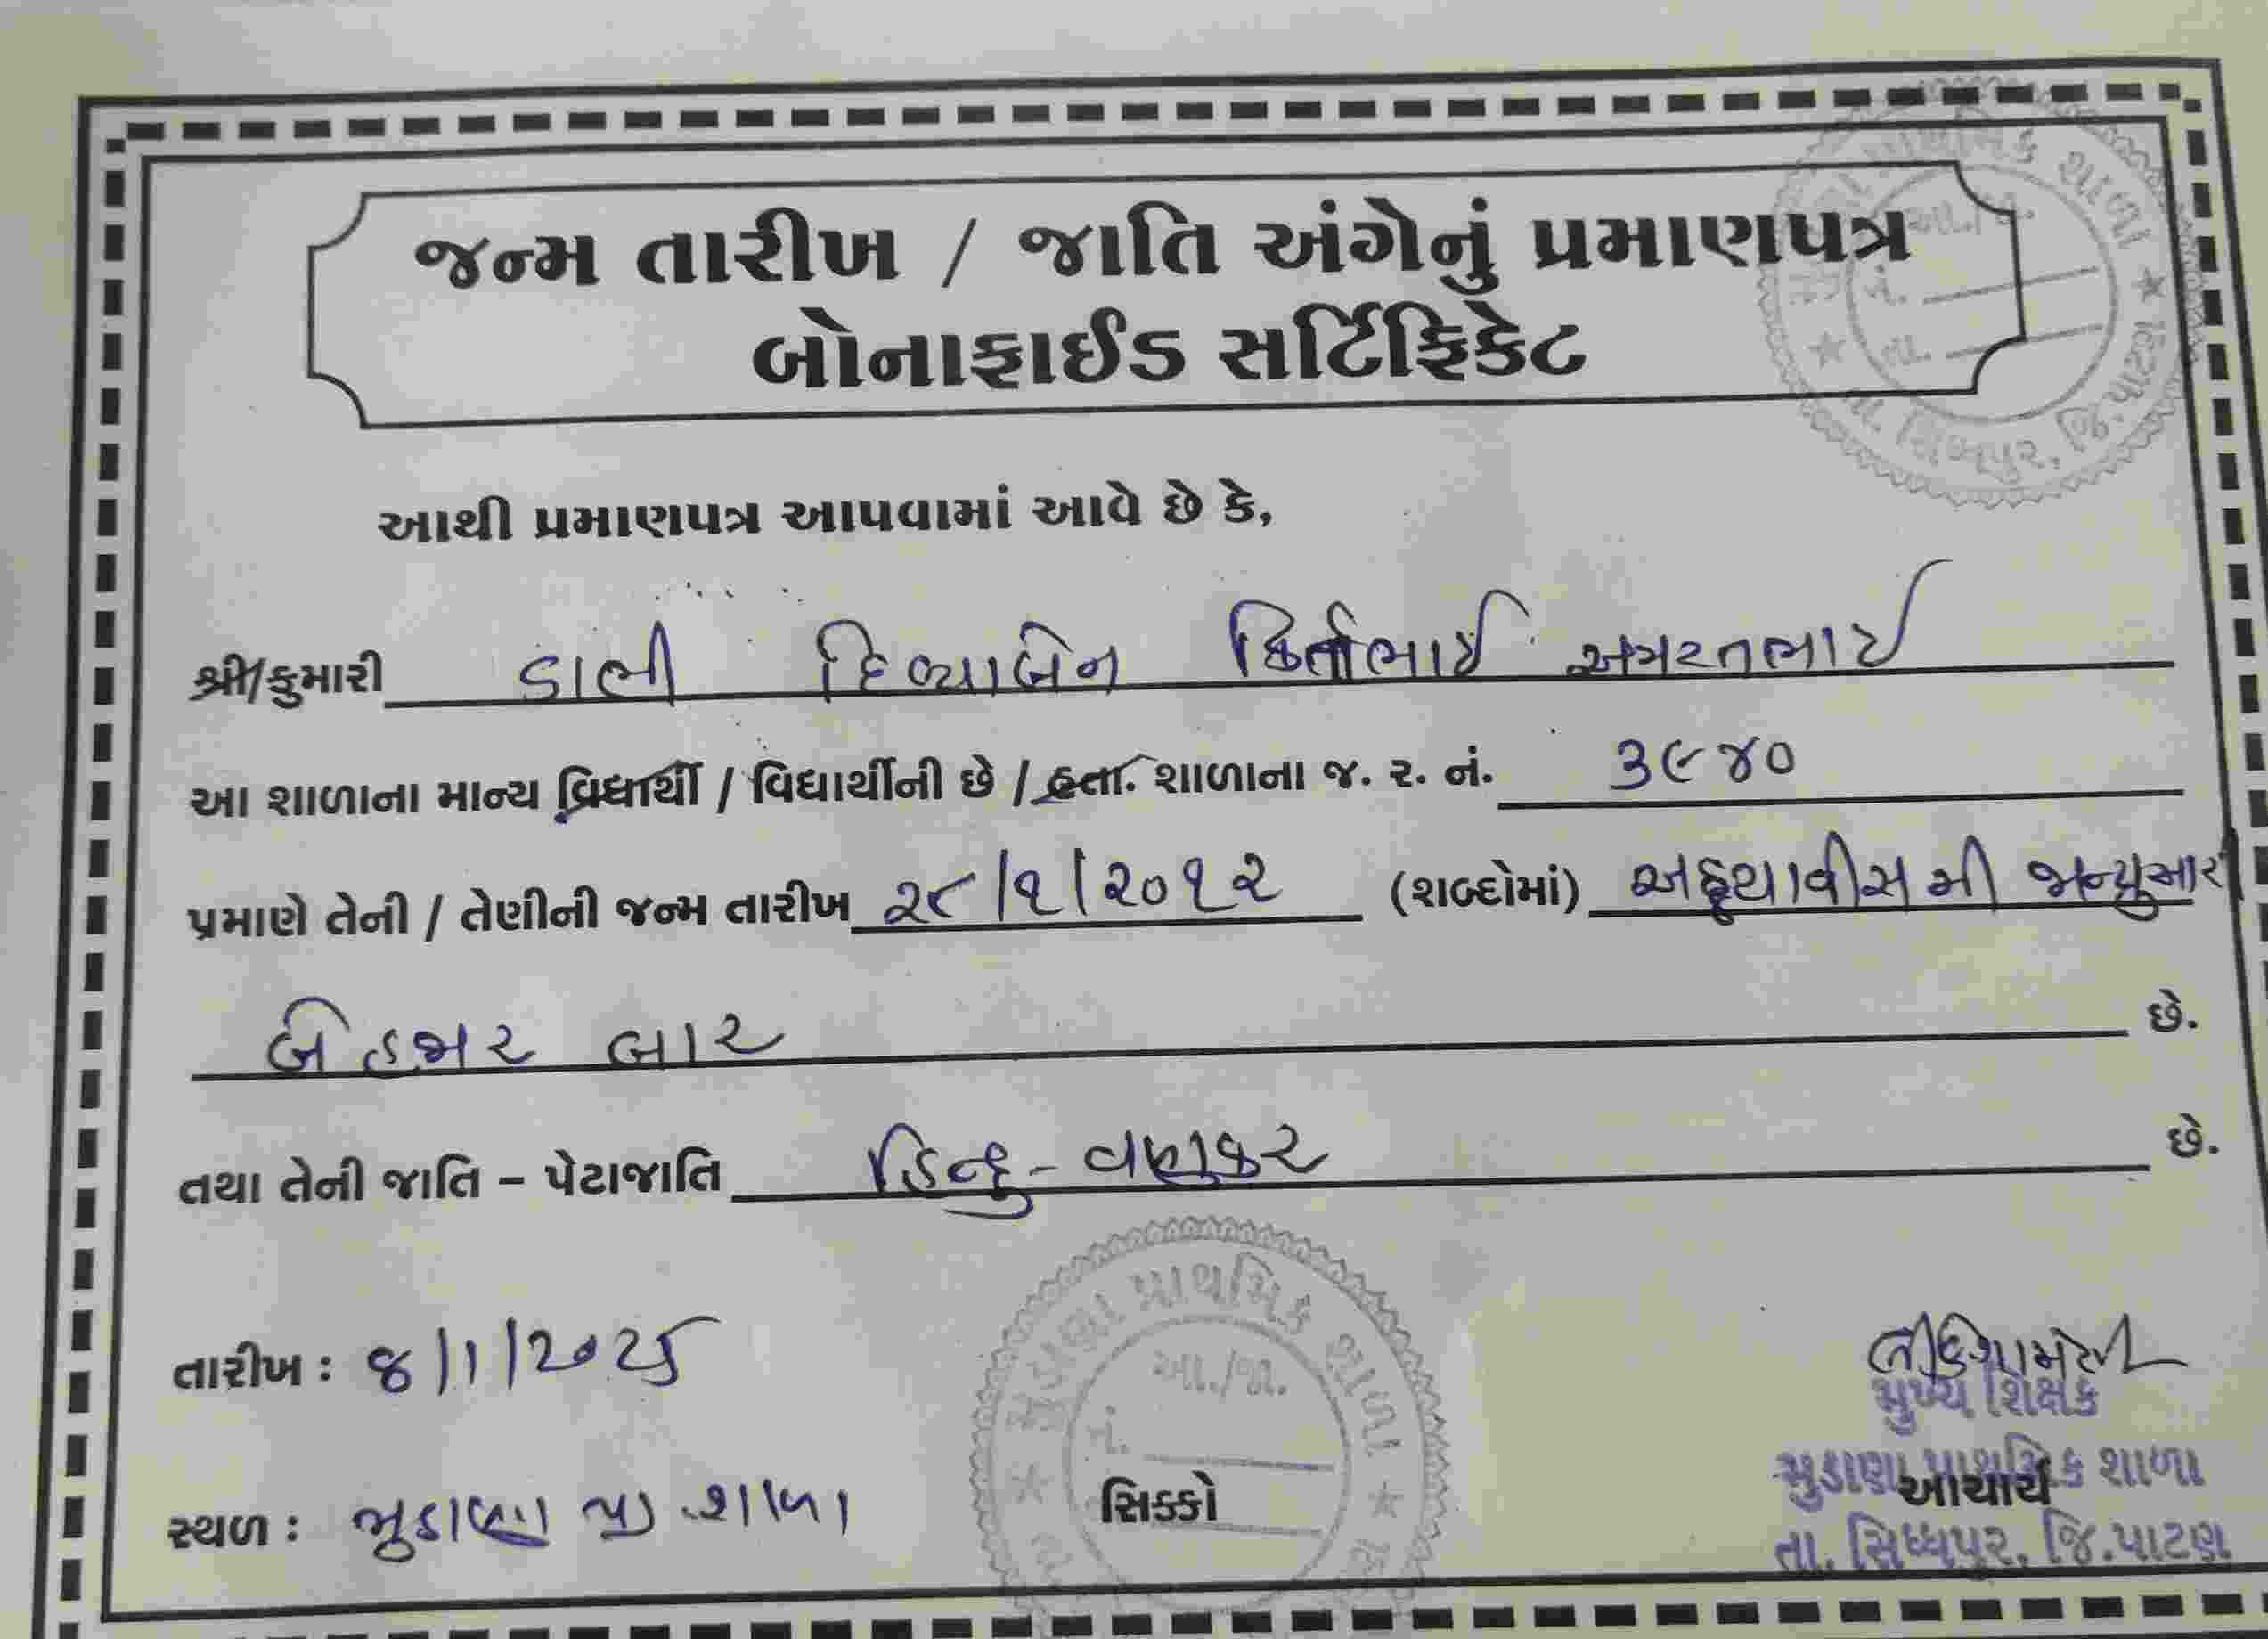 જન્મ તારીખ / જાતિ અંગેનું પ્રમાણપત્ર
બોનાફાઈડ સર્ટિફિકેટ
આથી પ્રમાણપત્ર આપવામાં આવે છે કે,
શ્રી/કુમારી ડાભી દિવ્યાબેન કિર્તીભાઈ અમરતભાઈ
આ શાળાના માન્ય વિદ્યાર્થી / વિદ્યાર્થીની છે / હતા. શાળાના જ. ર. નં. ૩૯૪૦
પ્રમાણે તેની / તેણીની જન્મ તારીખ ૨૮/૧/૨૦૧૨ (શબ્દોમાં) અઠ્ઠયાવીસમી જાન્યુઆરી
બે હજાર બાર છે.
તથા તેની જાતિ – પેટાજાતિ હિન્દુ - વણકર છે.
તારીખ : ૪/૧/૨૦૨૫
સ્થળ : મુડાણા પ્રા. શાળા
સિક્કો
મુખ્ય શિક્ષક
મુડાણા પ્રાથમિક શાળા
આચાર્ય
તા. સિધ્ધપુર, જિ.પાટણ
મુડાણા પ્રાથમિક શાળા
આ./જા.
નં.
પ્રાથમિક શાળા
આ./જા.
નં.
તા.
તા. સિધ્ધપુર, જિ.પાટણ